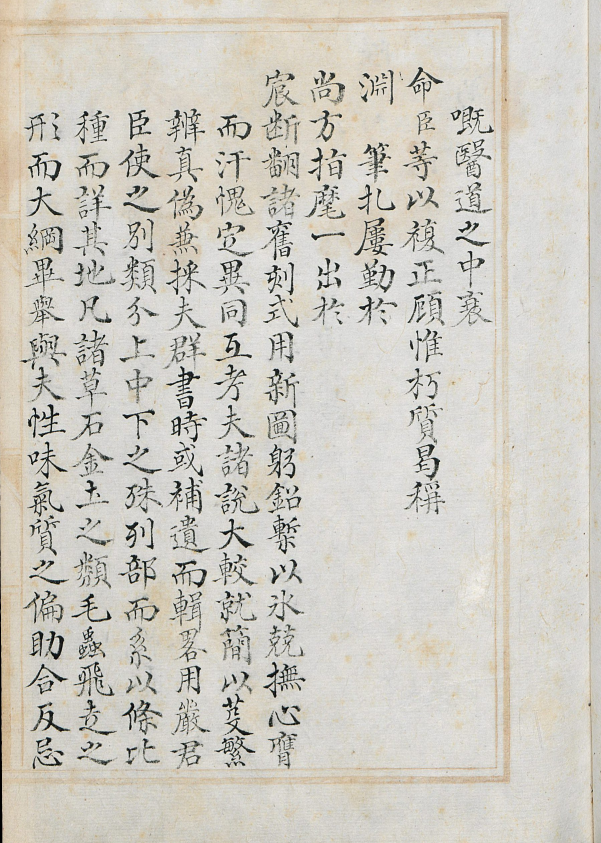 嘅醫道之中衰
命臣荨以複正顾惟朽質曷稱
淵　筆扎屢勤於
尚方指麾一出於
宸断翻諸舊刻式用新圖躬鉛槧以氷兢撫心膺
而汗愧定異同互考夫諸說大較就簡以芟繁
辨真偽兼採夫群書時或補遺而輯畧用嚴君
臣使之別類分上中下之殊列部而系以條比
種而詳其地凡諸草石金土之類毛蟲飛走之
形而大綱畢舉與夫性味氣質之偏助合反忌